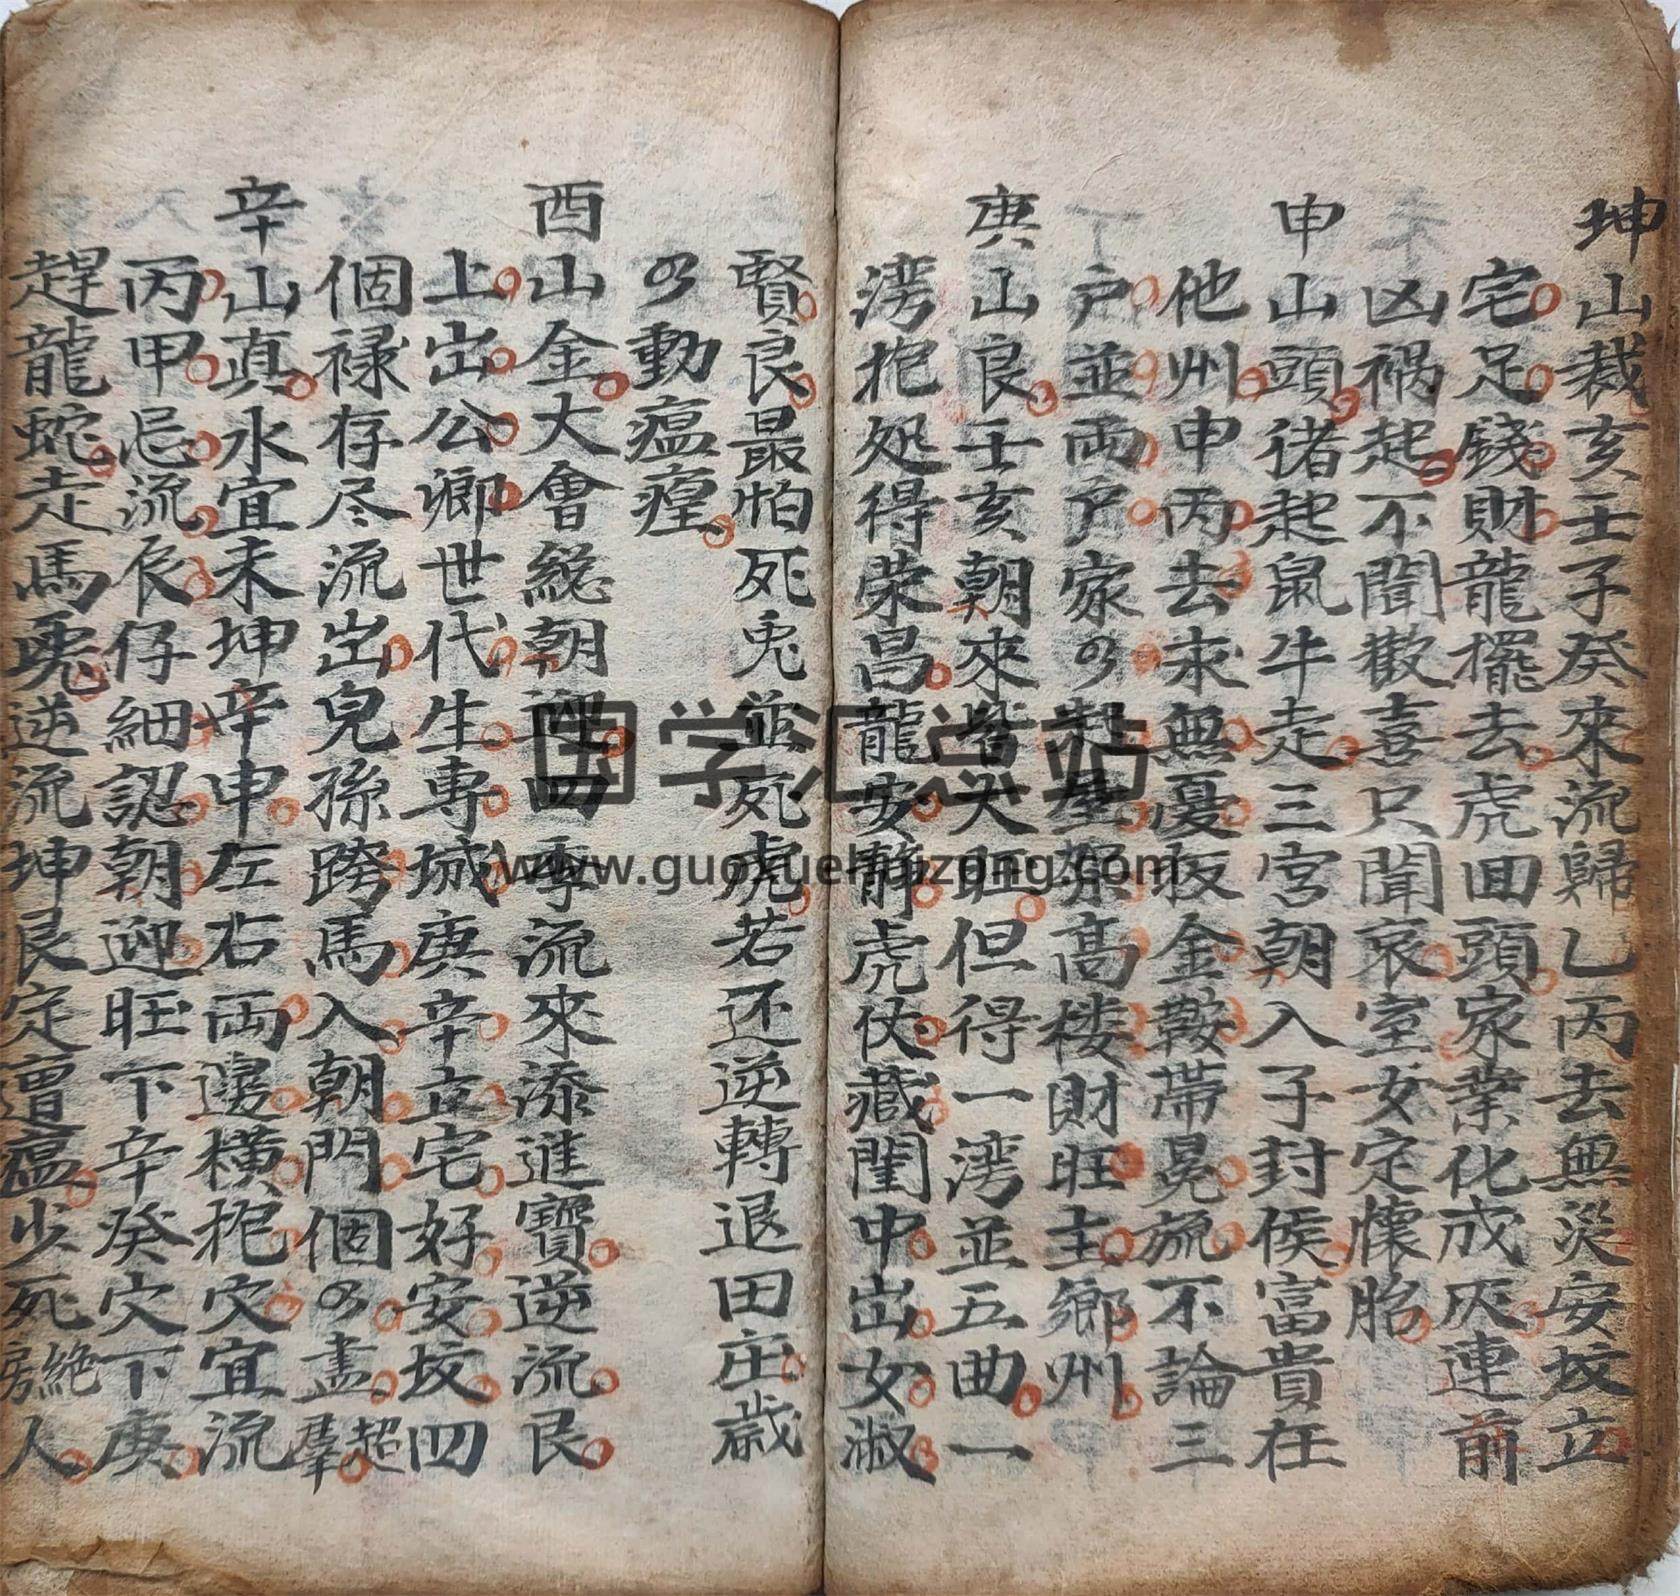 坤山裁亥壬子癸來流歸乙丙去無災安坟立
宅足錢財龍擺去虎回頭家業化成灰連前
凶禍起不聞歡喜只聞哀室女定懷胎
申山頭起鼠牛走三宮朝入子封侯富貴在
他州申丙去求無憂扳金鞍帶晃旒不論三
户並両户家々起屋高楼財旺主鄉州
庚山良壬亥朝來皆大旺但得一湾並五曲一
湾抱処得荣昌龍安静虎伏藏閨中出女淑
賢良最怕死兎並死虎若还逆轉退田庄歲
々動瘟㾮
酉山金大會総朝迎四季流來添進寶逆流艮
上出公卿世代生專城庚辛立宅好安坟四
個禄存尽流出兒孫跨馬入朝門個々盡超羣
辛山真水宜未坤辛申左右両邊橫抱穴宜流
丙甲忌流辰仔細認朝迎旺下辛癸穴下庚
趕龍蛇走馬兎逆流坤艮定遭瘟少死絶房人
国学汇总站
www.guoxuehuizong.com